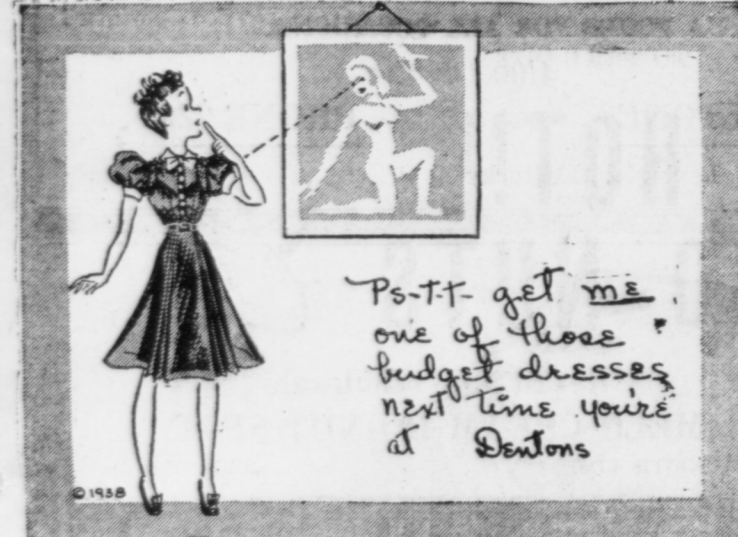 Ps-T-T- get me
one of those
budget dresses
next time you're
at Dentons
© 1938